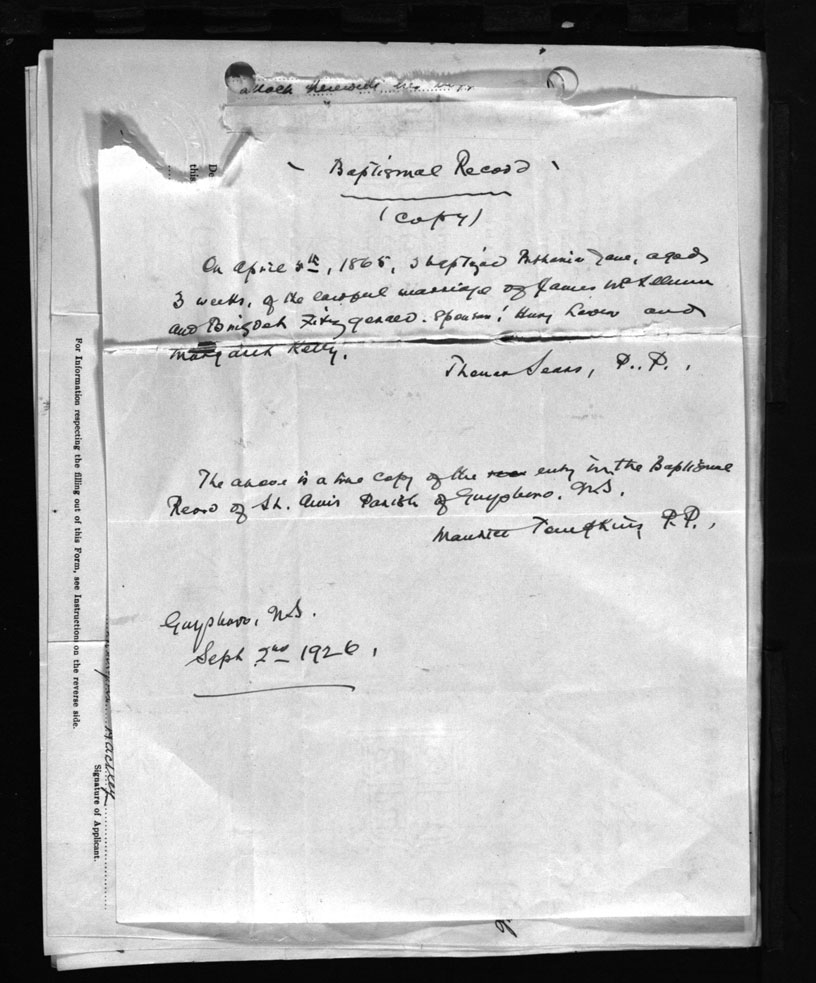 attach herewith
De
this
Baptismal Record
(Copy)
On April 5th, 1865, I baptized Jane, aged
3 weeks, of the lawful marriage of James McLellan
and Bridget Fitzgerald. Sponsors: Henry and
Margaret Kelly.
Thomas Sears, P.P.,
The above is a true copy of the entry in the Baptismal
Record of St. Ann's Parish of Guysboro. N.S.
Maurice Tompkins P.P.,
Guysboro, N.S.
Sept 2nd 1926,
For Information respecting the filling out of this Form, see Instructions on the reverse side.
Mackey
Signature of Applicant.